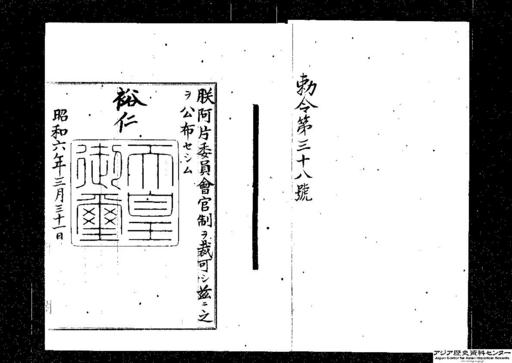 勅令第三十八號
朕阿片委員會官制ヲ裁可シ茲ニ之
ヲ公布セシム
裕仁
天皇
御璽
昭和六年三月三十一日
アジア歴史資料センター
Japan Center for Asian Historical Records